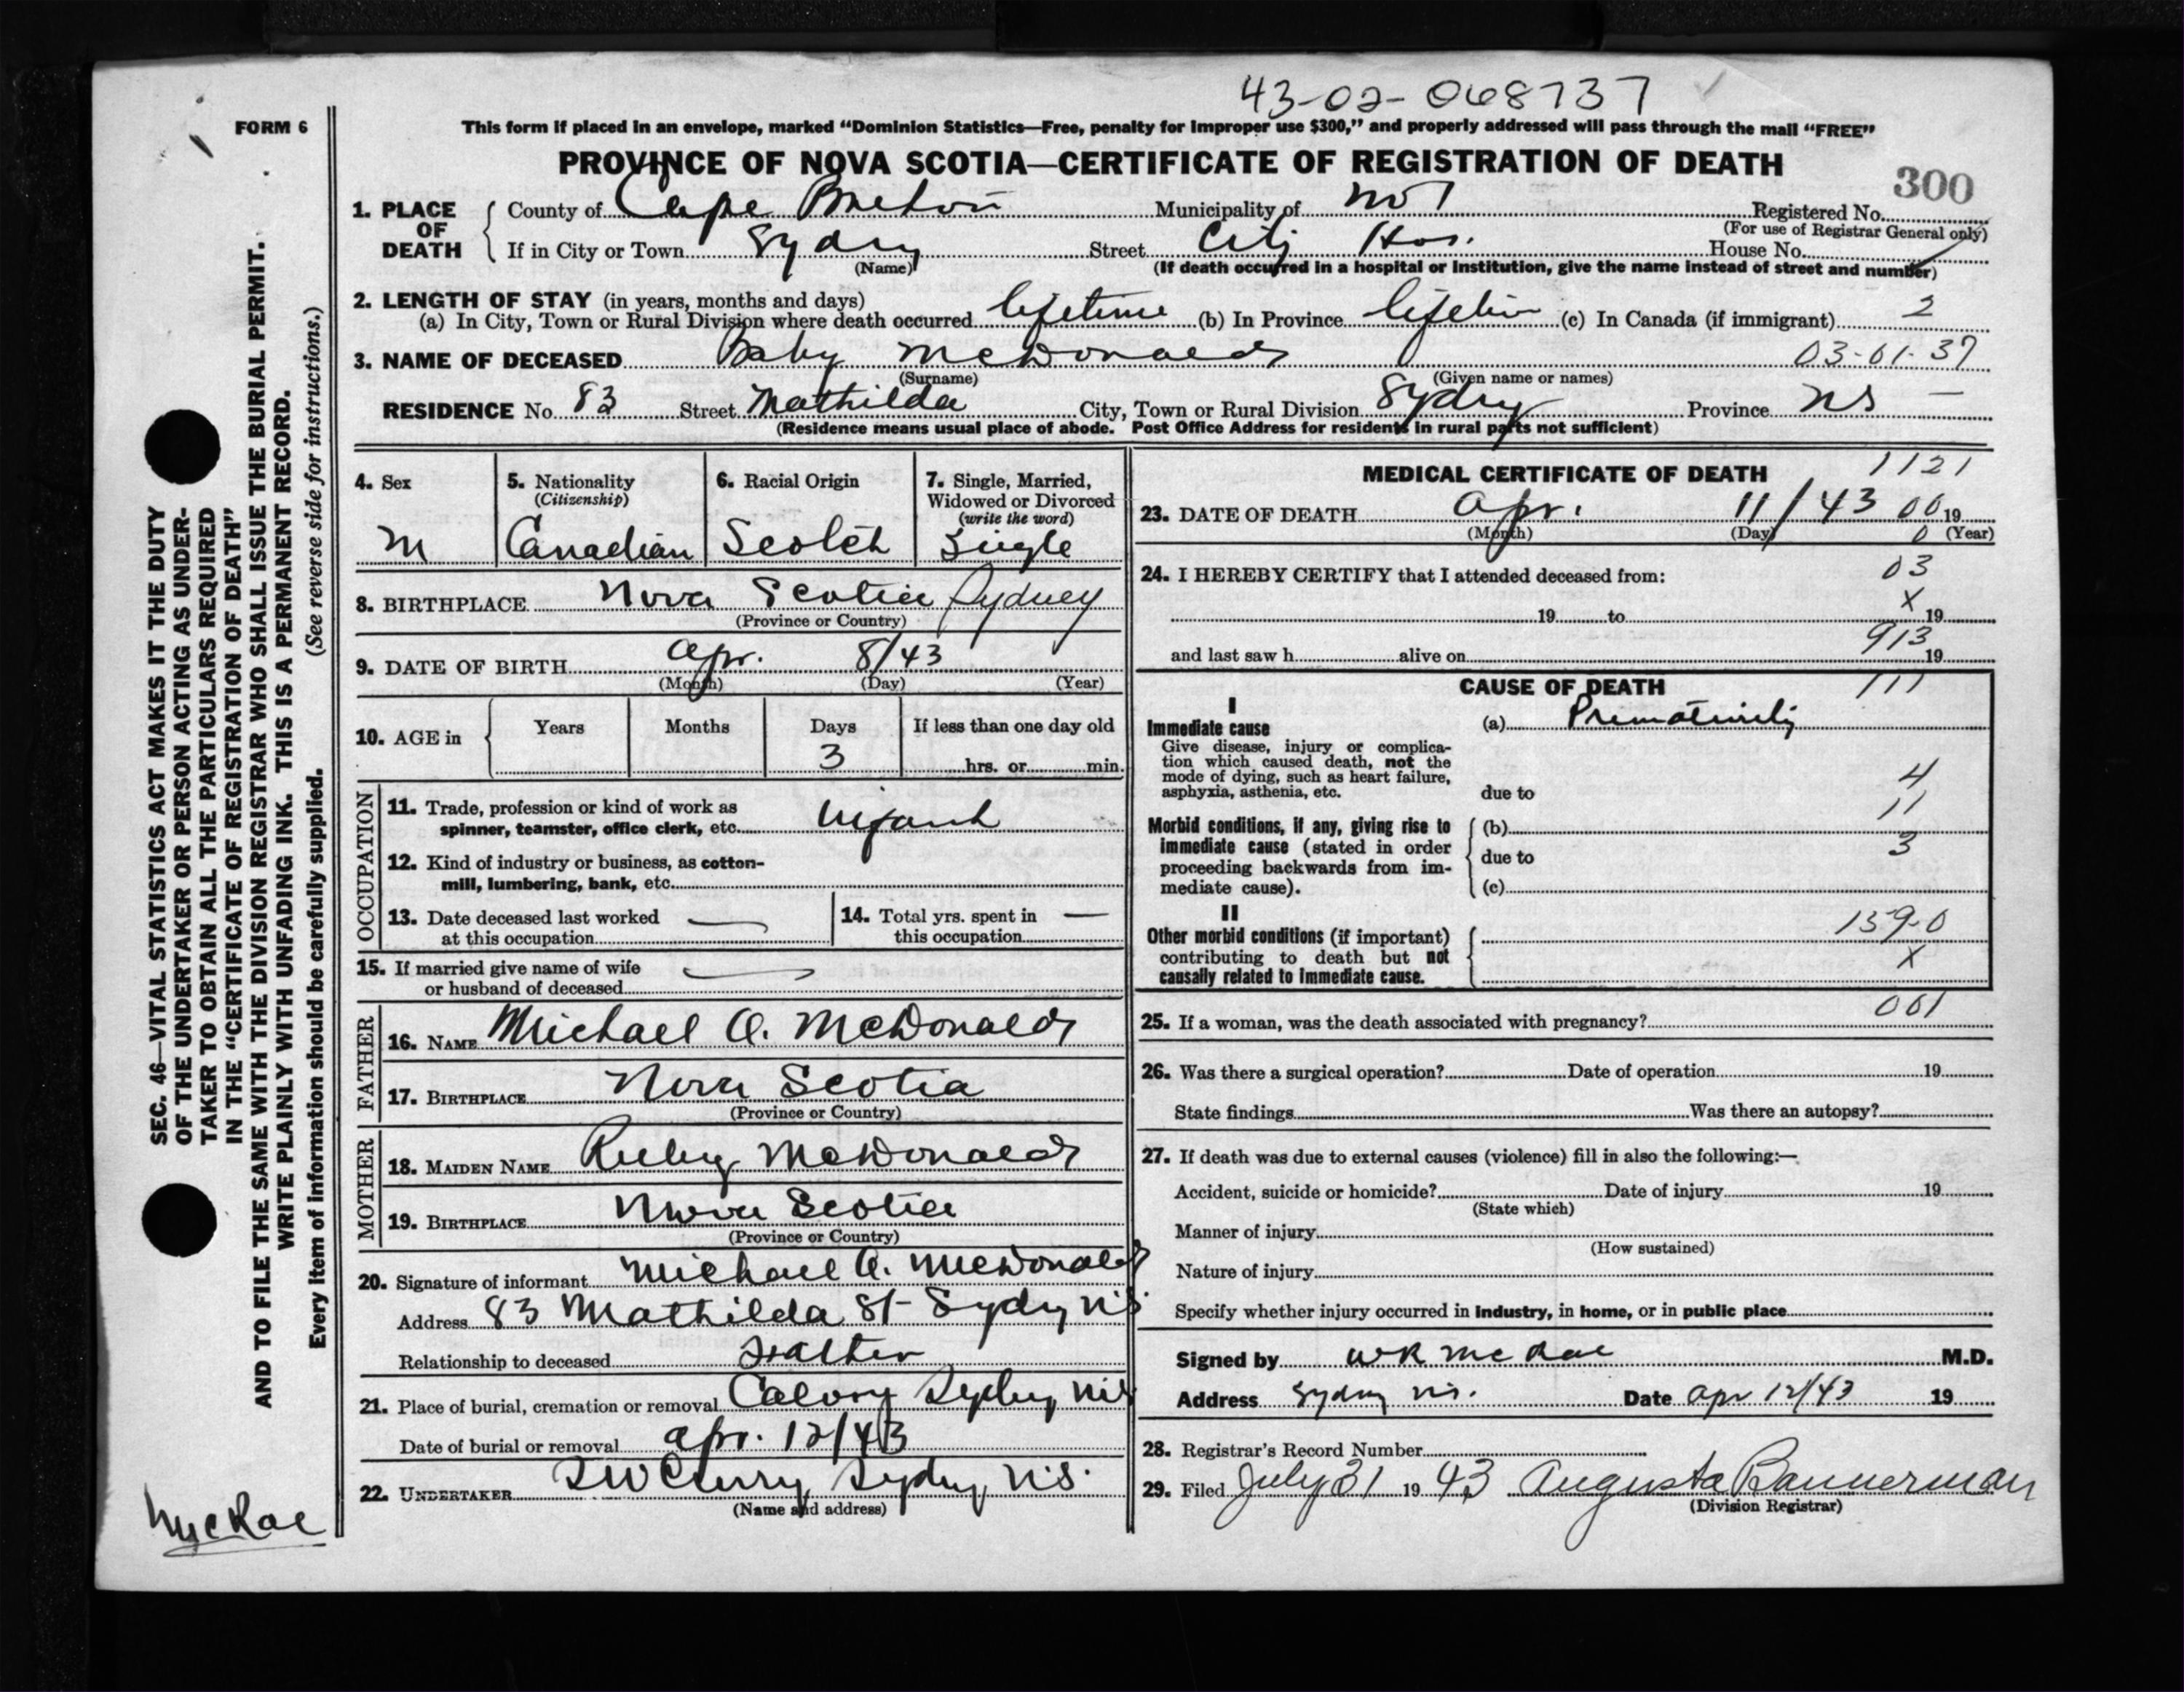 43-02-068737
FORM 6
This form if placed in an envelope, marked “Dominion Statistics—Free, penalty for improper use $300,” and properly addressed will pass through the mail “FREE”
PROVINCE OF NOVA SCOTIA—CERTIFICATE OF REGISTRATION OF DEATH
300
1. PLACE OF DEATH County of Cape Breton Municipality of No 1 Registered No.
(For use of Registrar General only)
If in City or Town Sydney Street City Hos. House No.
(Name) (If death occurred in a hospital or institution, give the name instead of street and number)
2. LENGTH OF STAY (in years, months and days)
(a) In City, Town or Rural Division where death occurred lifetime (b) In Province lifetime (c) In Canada (if immigrant) 2
3. NAME OF DECEASED Baby McDonald 03-01-37
(Surname) (Given name or names)
RESIDENCE No. 83 Street Mathilda City, Town or Rural Division Sydney Province NS —
(Residence means usual place of abode. Post Office Address for residents in rural parts not sufficient)
4. Sex M
5. Nationality (Citizenship) Canadian
6. Racial Origin Scotch
7. Single, Married, Widowed or Divorced (write the word) Single
8. BIRTHPLACE Nova Scotia Sydney
(Province or Country)
9. DATE OF BIRTH Apr. 8/43
(Month) (Day) (Year)
10. AGE in Years Months Days If less than one day old
3 hrs. or min.
OCCUPATION
11. Trade, profession or kind of work as
spinner, teamster, office clerk, etc. Infant
12. Kind of industry or business, as cotton-
mill, lumbering, bank, etc.
13. Date deceased last worked —
at this occupation
14. Total yrs. spent in —
this occupation
15. If married give name of wife —
or husband of deceased
FATHER
16. NAME Michael A. McDonald
17. BIRTHPLACE Nova Scotia
(Province or Country)
MOTHER
18. MAIDEN NAME Ruby McDonald
19. BIRTHPLACE Nova Scotia
(Province or Country)
20. Signature of informant Michael A. McDonald
Address 83 Mathilda St Sydney N.S.
Relationship to deceased Father
21. Place of burial, cremation or removal Calvary Sydney N.S.
Date of burial or removal Apr. 12/43
22. UNDERTAKER Curry Sydney N.S.
(Name and address)
MEDICAL CERTIFICATE OF DEATH 1121
23. DATE OF DEATH Apr. 11/43 00 19
(Month) (Day) 0 (Year)
24. I HEREBY CERTIFY that I attended deceased from: 03
19 to X 19
and last saw h alive on 913 19
CAUSE OF DEATH 111
I
Immediate cause (a) Prematurity
Give disease, injury or complica-
tion which caused death, not the
mode of dying, such as heart failure,
asphyxia, asthenia, etc. due to 4
11
Morbid conditions, if any, giving rise to (b)
immediate cause (stated in order due to 3
proceeding backwards from im-
mediate cause). (c)
II
Other morbid conditions (if important) 159-0
contributing to death but not X
causally related to immediate cause.
25. If a woman, was the death associated with pregnancy? 001
26. Was there a surgical operation? Date of operation 19
State findings Was there an autopsy?
27. If death was due to external causes (violence) fill in also the following:—
Accident, suicide or homicide? Date of injury 19
(State which)
Manner of injury
(How sustained)
Nature of injury
Specify whether injury occurred in industry, in home, or in public place
Signed by WR McRae M.D.
Address Sydney N.S. Date Apr 12/43 19
28. Registrar's Record Number
29. Filed July 31 1943 Augusta Bannerman
(Division Registrar)
SEC. 46—VITAL STATISTICS ACT MAKES IT THE DUTY
OF THE UNDERTAKER OR PERSON ACTING AS UNDER-
TAKER TO OBTAIN ALL THE PARTICULARS REQUIRED
IN THE “CERTIFICATE OF REGISTRATION OF DEATH”
AND TO FILE THE SAME WITH THE DIVISION REGISTRAR WHO SHALL ISSUE THE BURIAL PERMIT.
WRITE PLAINLY WITH UNFADING INK. THIS IS A PERMANENT RECORD.
Every item of information should be carefully supplied. (See reverse side for instructions.)
McRae